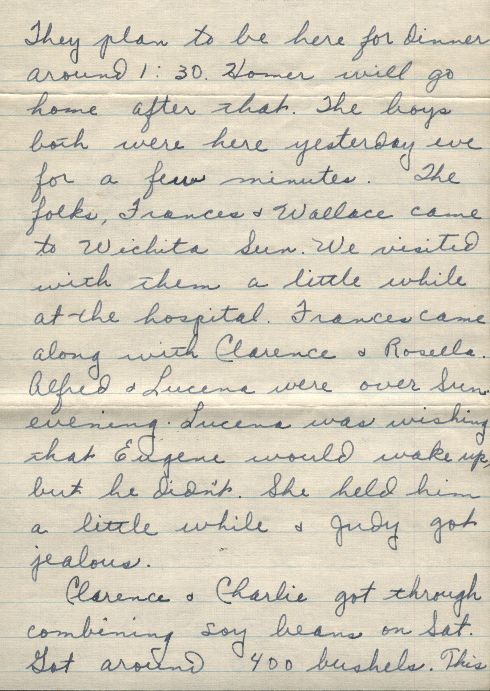 They plan to be here for dinner
around 1:30. Homer will go
home after that. The boys
both were here yesterday eve
for a few minutes. The
folks, Frances & Wallace came
to Wichita Sun. We visited
with them a little while
at the hospital. Frances came
along with Clarence & Rosella.
Alfred & Lucena were over Sun.
evening. Lucena was wishing
that Eugene would wake up,
but he didn't. She held him
a little while & Judy got
jealous.
Clarence & Charlie got through
combining soy beans on Sat.
Got around 400 bushels. This